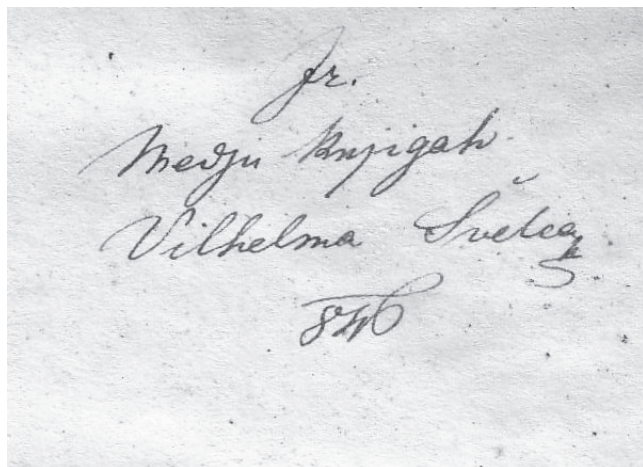 Iz.
Medju knjigah
Vilhelma Švelca
846